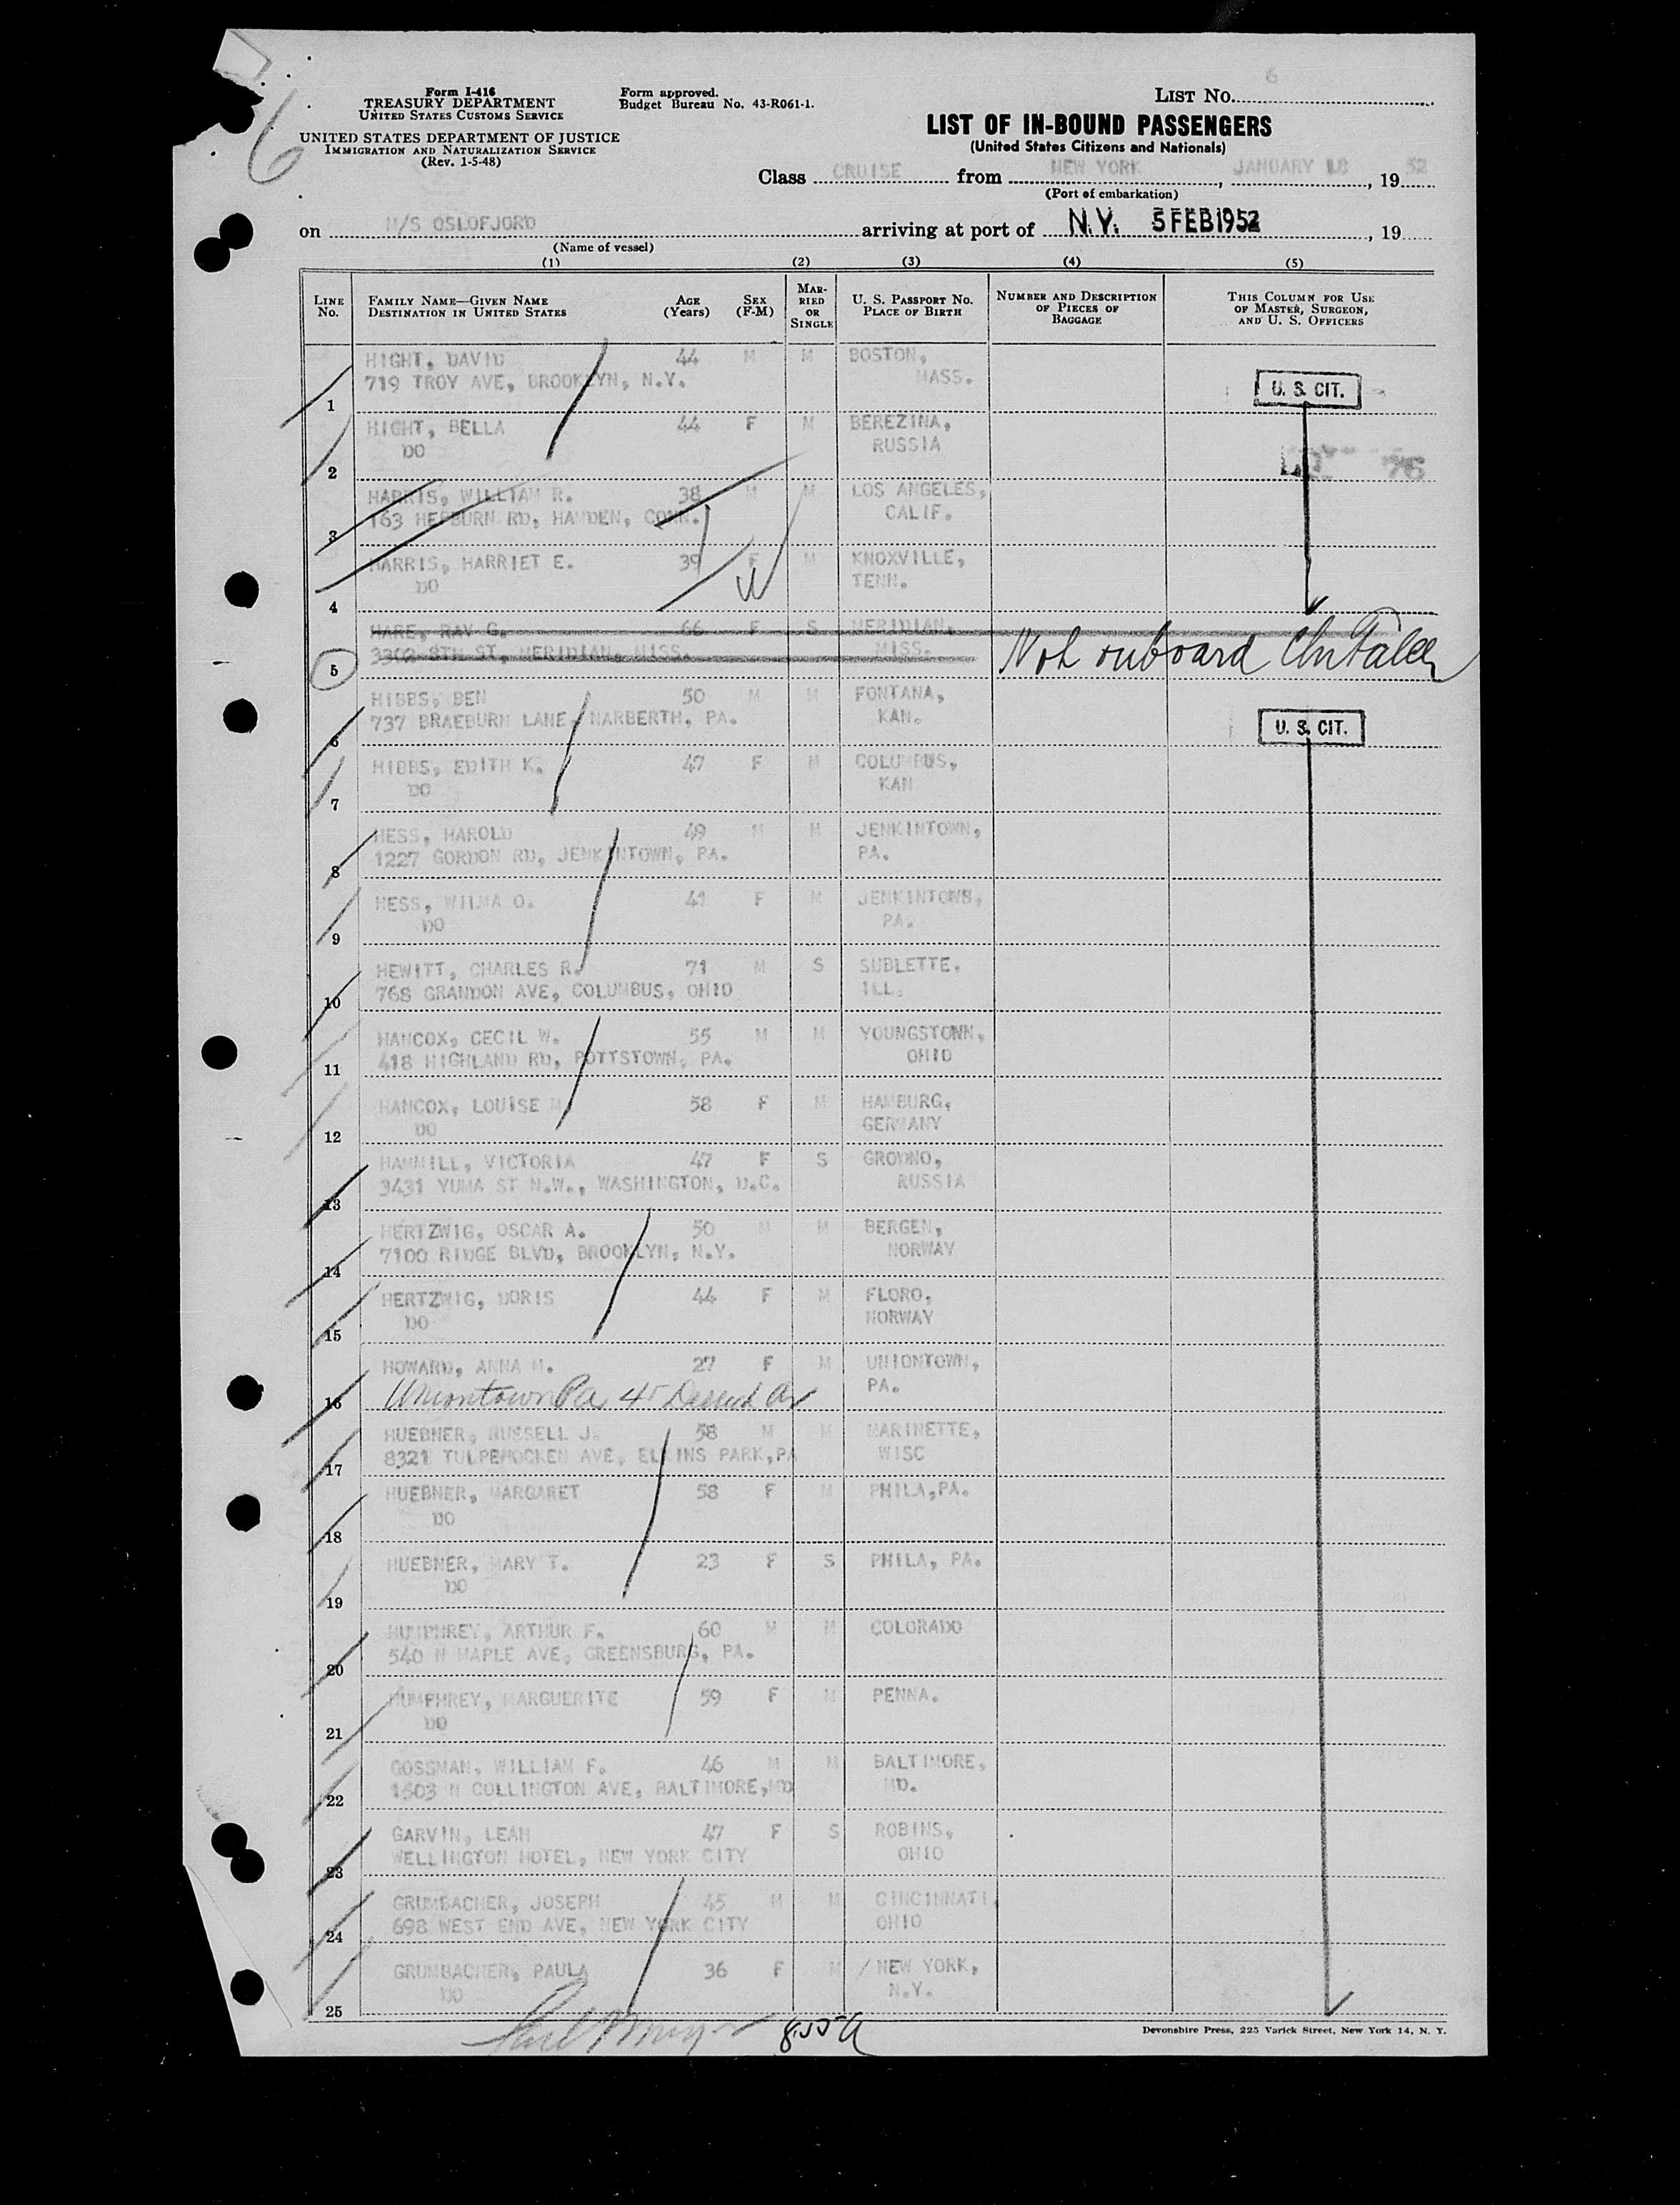 6
Form I-416
TREASURY DEPARTMENT
UNITED STATES CUSTOMS SERVICE
UNITED STATES DEPARTMENT OF JUSTICE
IMMIGRATION AND NATURALIZATION SERVICE
(Rev. 1-5-48)
Form approved.
Budget Bureau No. 43-R061-1.
LIST NO. 6
LIST OF IN-BOUND PASSENGERS
(United States Citizens and Nationals)
Class CRUISE from NEW YORK, JANUARY 18, 1952
(Port of embarkation)
on M/S OSLOFJORD arriving at port of N.Y. 5 FEB 1952, 19
(Name of vessel)
(1) (2) (3) (4) (5)
LINE No. FAMILY NAME—GIVEN NAME DESTINATION IN UNITED STATES AGE (Years) SEX (F-M) MARRIED OR SINGLE U. S. PASSPORT NO. PLACE OF BIRTH NUMBER AND DESCRIPTION OF PIECES OF BAGGAGE THIS COLUMN FOR USE OF MASTER, SURGEON, AND U. S. OFFICERS
HIGHT, DAVID 44 M M BOSTON,
719 TROY AVE, BROOKLYN, N.Y. MASS. U. S. CIT.
1
HIGHT, BELLA 44 F M BEREZINA,
DO RUSSIA
2 76
HARRIS, WILLIAM R. 38 M M LOS ANGELES,
163 HEPBURN RD, HAMDEN, CONN. CALIF.
3
HARRIS, HARRIET E. 39 F M KNOXVILLE,
DO TENN.
4
HARE, RAY G. 66 F S MERIDIAN,
3303 8TH ST, MERIDIAN, MISS. MISS. Not onboard
5
HIBBS, BEN 50 M M FONTANA,
737 BRAEBURN LANE, NARBERTH, PA. KAN. U. S. CIT.
6
HIBBS, EDITH K. 47 F M COLUMBUS,
DO KAN
7
HESS, HAROLD 49 M M JENKINTOWN,
1227 GORDON RD, JENKINTOWN, PA. PA.
8
HESS, WILMA O. 41 F M JENKINTOWN,
DO PA.
9
HEWITT, CHARLES R. 71 M S SUBLETTE,
768 GRANDON AVE, COLUMBUS, OHIO ILL.
10
HANCOX, CECIL W. 55 M M YOUNGSTONN,
418 HIGHLAND RD, POTTSTOWN, PA. OHIO
11
HANCOX, LOUISE M 58 F M HAMBURG,
DO GERMANY
12
HAMMILL, VICTORIA 47 F S GRODNO,
3431 YUMA ST N.W., WASHINGTON, D.C. RUSSIA
13
HERTZWIG, OSCAR A. 50 M M BERGEN,
7100 RIDGE BLVD, BROOKLYN, N.Y. NORWAY
14
HERTZWIG, DORIS 44 F M FLORO,
DO NORWAY
15
HOWARD, ANNA M. 27 F M UNIONTOWN,
Uniontown Pa 45 PA.
16
HUEBNER, RUSSELL J. 58 M M MARINETTE,
8321 TULPEHOCKEN AVE, ELKINS PARK,PA WISC
17
HUEBNER, MARGARET 58 F M PHILA,PA.
DO
18
HUEBNER, MARY T. 23 F S PHILA, PA.
DO
19
HUMPHREY, ARTHUR F. 60 M M COLORADO
540 N MAPLE AVE, GREENSBURG, PA.
20
HUMPHREY, MARGUERITE 59 F M PENNA.
DO
21
GOSSMAN, WILLIAM F. 46 M M BALTIMORE,
1503 N COLLINGTON AVE, BALTIMORE,MD MD.
22
GARVIN, LEAH 47 F S ROBINS,
WELLINGTON HOTEL, NEW YORK CITY OHIO
23
GRUMBACHER, JOSEPH 45 M M CINCINNATI,
698 WEST END AVE, NEW YORK CITY OHIO
24
GRUMBACHER, PAULA 36 F M / NEW YORK,
DO N.Y.
25
Devonshire Press, 225 Varick Street, New York 14, N. Y.